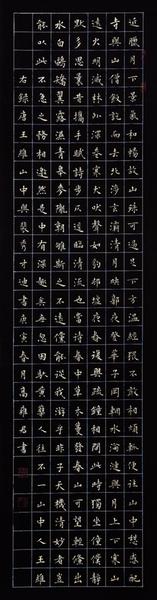 近臘月下景氣和暢故山殊可過足下方溫經猥不敢相煩輒便往山中憩感配
寺與山僧飯訖而去北涉玄灞清月映郭夜登華子岡輞水淪漣與月上下寒山
遠火明滅林外深巷寒犬吠聲如豹村墟夜舂復與疏鐘相間此時獨坐僮僕靜
默多思曩昔攜手賦詩步仄逕臨清流也當待春中草木蔓發春山可望輕鰷出
水白鷗矯翼露濕青皋麥隴朝雊斯之不遠儻能從我遊乎非子天機清妙者豈
能以此不急之務相邀然是中有深趣矣無忽因馱黃檗人往不一山中人王維
右錄唐王維山中與裴秀才迪書庚寅春月高雄君書